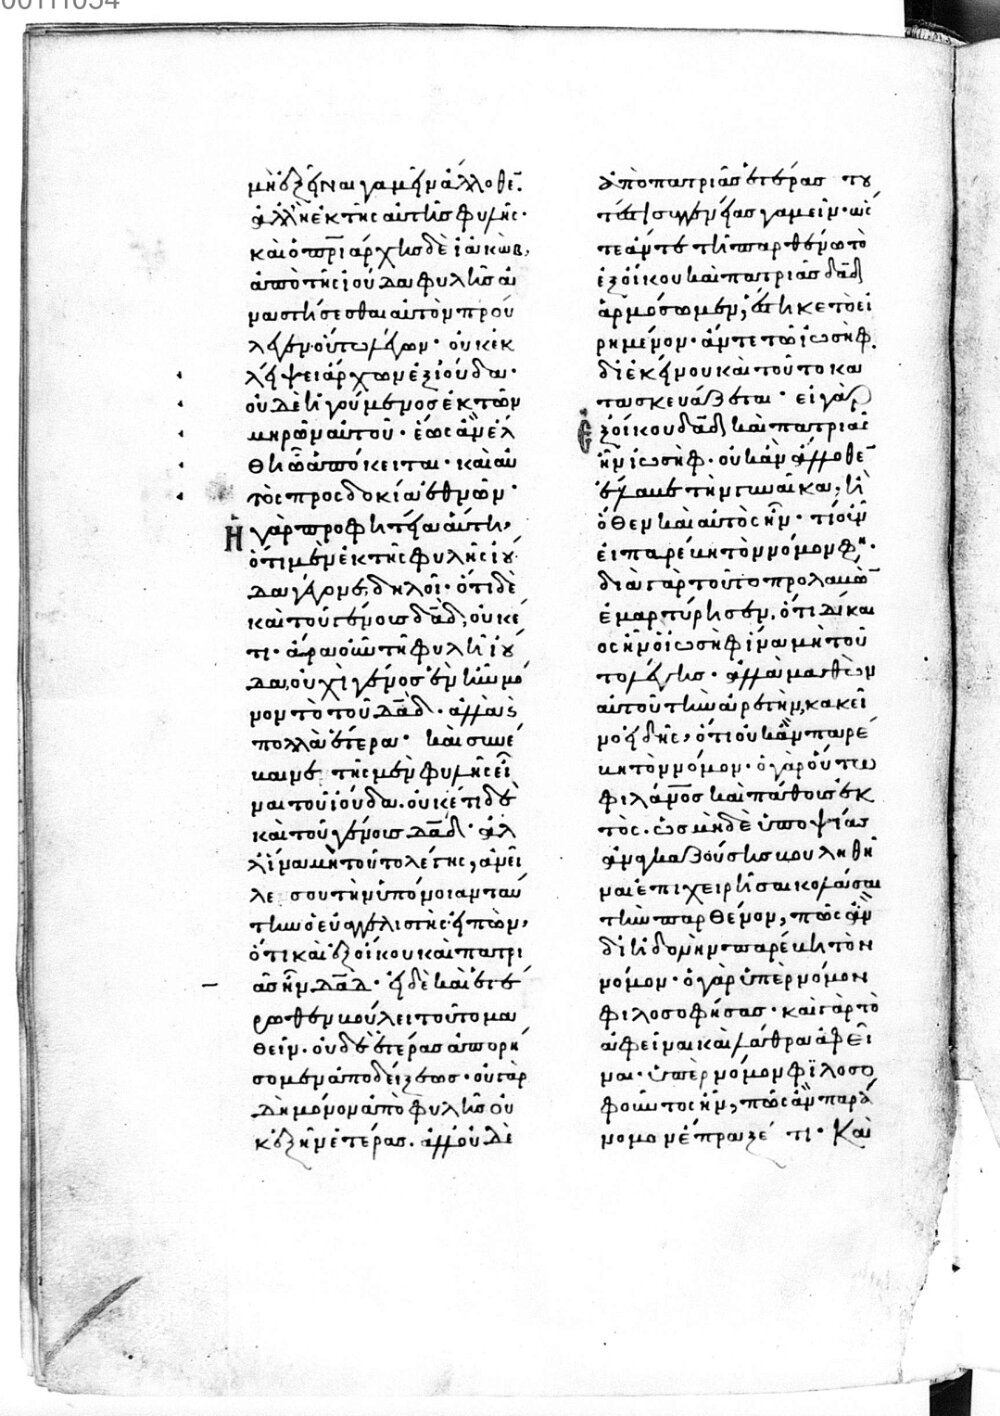 μὴ ἐξῆναι γαμῆν ἄλλοθεν.
ἀλλ' ἢ ἐκ τῆς αὐτῆς φυλῆς·
καὶ ὁ πριάρχης δὲ ἰακὼβ,
ἀπὸ τῆς ἰούδα φυλῆς ἀ
ναστήσεσθαι αὐτὸν πρού
λεγεν οὕτω λέγων· οὐκ ἐκ
λείψει ἄρχων ἐξ ἰούδα·
οὐδὲ ἡγούμενος ἐκ τῶν
μηρῶν αὐτοῦ· ἕως ἂν ἔλ
θῃ ὧ ἀπόκειται· καὶ αὐ
τὸς προσδοκία ἐθνῶν·
Ἡ γὰρ προφητεία αὕτη,
ὅτι μὲν ἐκ τῆς φυλῆς ἰού
δα γέγονε, δηλοῖ· ὅτι δὲ
καὶ τοῦ γένους δαδ, οὐκέ
τι· ἆρα οὖν τῆ φυλῆ ἰού
δα, οὐχὶ γένος ἐν ἦν μό
νον τὸ τοῦ δαδ· ἀλλὰ καὶ
πολλὰ ἕτερα· καὶ συνέ
βαινε τῆς μὲν φυλῆς εἶ
ναι τοῦ ἰούδα. οὐκέτι δὲ
καὶ τοῦ γένους δαδ· ἀλ
λ' ἵνα μὴ τοῦτο λέγης, ἀνεῖ
λέ σου τὴν ὑπόνοιαν ταύ
την ὁ εὐαγγελιστὴς εἰπὼν,
ὅτι καὶ ἐξ οἴκου καὶ πατρι
ᾶς ἦν δαδ· εἰ δὲ καὶ ἑτέ
ρωθεν βούλει τοῦτο μα
θεῖν. οὐδὲ ἑτέρας ἀπορή
σομεν ἀποδείξεως· οὐ γὰρ
δὴ μόνον ἀπὸ φυλῆς οὐ
κ ἐξῆν ἑτέρας. ἀλλ' οὐδὲ
ἀπὸ πατριᾶς ἑτέρας του
τέστι συγγενείας γαμεῖν· ὥσ
τε ἄν τε τὴν παρθένον τὸ
ἐξ οἴκου καὶ πατριᾶς δαδ
ἁρμόσωμεν, ἕστηκε τὸ εἰ
ρημένον· ἄν τε τῶ ἰωσὴφ.
δι' ἐκείνου καὶ τοῦτο κα
τασκευάζεται· εἰ γὰρ
ἐξ οἴκου δαδ καὶ πατριᾶς
ἦν ἰωσὴφ· οὐκ ἂν ἄλλοθεν
ἔλαβε τὴν γυναῖκα, ἢ
ὅθεν καὶ αὐτὸς ἦν· τί οὖν
εἰ παρέβη τὸν νόμον φη·
διὰ γὰρ τοῦτο προλαβὼν
ἐμαρτύρησεν, ὅτι δίκαι
ος ἦν ὁ ἰωσὴφ ἵνα μὴ τοῦ
το λέγης· ἀλλὰ μαθὼν
αὐτοῦ τὴν ἀρετὴν, κἀκεῖ
νο εἰδῆς, ὅτι οὐκ ἂν παρέ
βη τὸν νόμον· ὁ γὰρ οὕτω
φιλάνος καὶ πάθους ἐκ
τὸς. ὡς μηδὲ ὑποψίας
ἀναγκαζούσης βουληθῆ
ναι ἐπιχειρῆσαι κολάσαι
τὴν παρθένον, πῶς ἂν
δι' ἡδονὴν παρέβη τὸν
νόμον· ὁ γὰρ ὑπὲρ νόμον
φιλοσοφήσας· καὶ γὰρ τὸ
ἀφεῖναι καὶ λάθρα ἀφεῖ
ναι· ὑπὲρ νόμον φιλοσο
φοῦντος ἦν, πῶς ἂν παρά
νομον ἔπραξέ τι· Καὶ